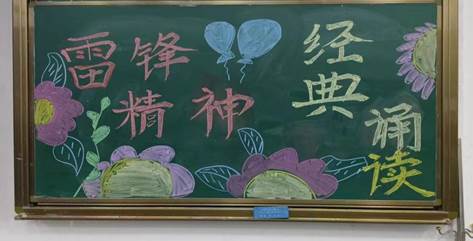 雷锋
精神
经典
诵读